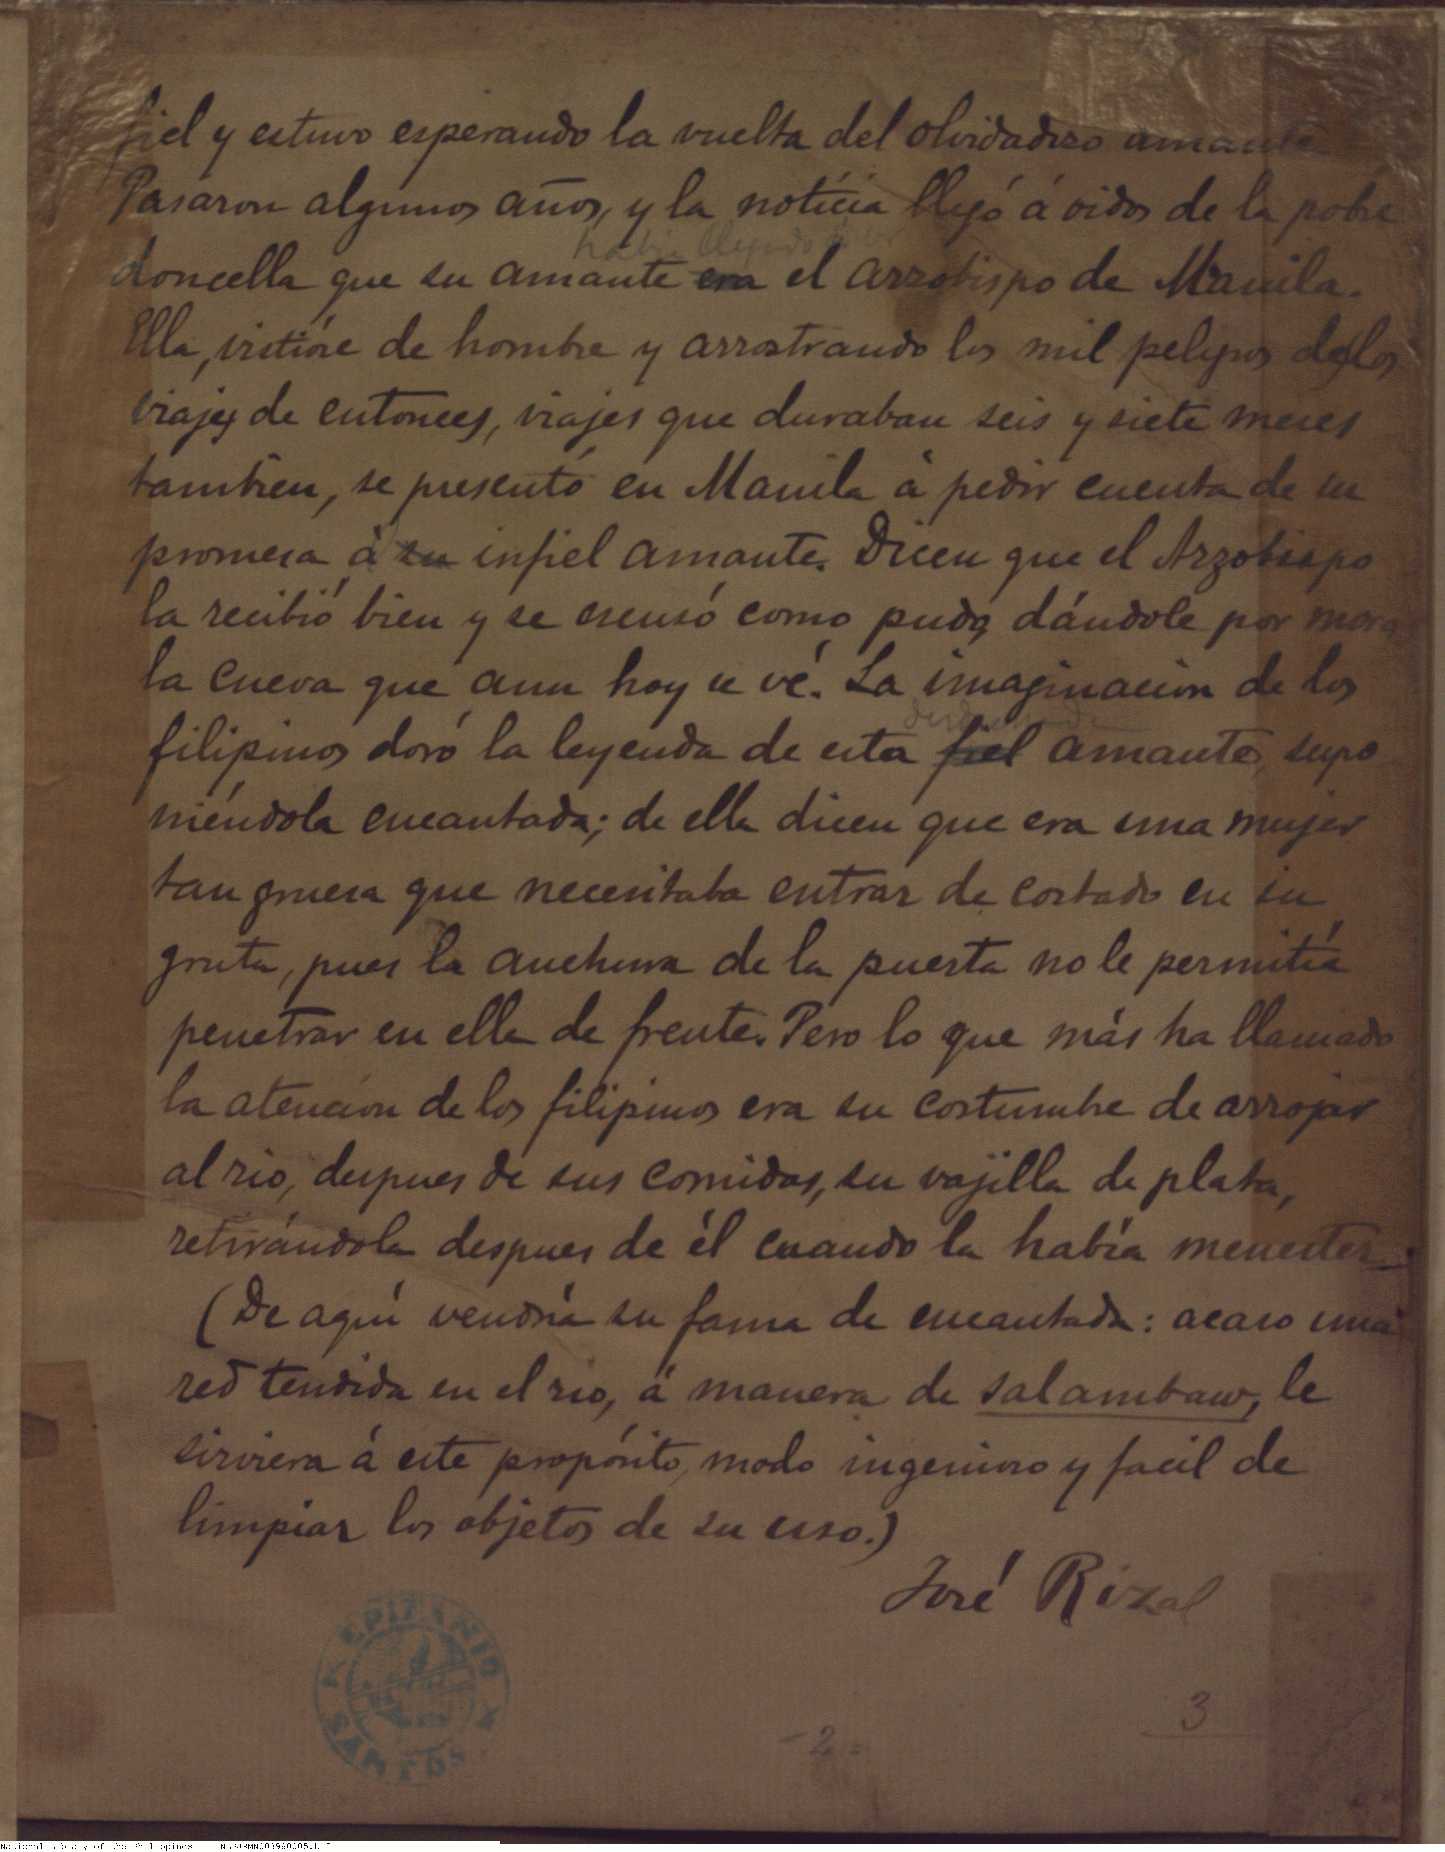 fiel y estuvo esperando la vuelta del olvidadizo amante
Pasaron algunos años, y la noticia llegó á oidos de la pobre
había llegado á ser
doncella que su amante era el arzobispo de Manila.
Ella, vistióse de hombre y arrostrando los mil peligros de los
viajes de entonces, viajes que duraban seis y siete meses
tambien, se presentó en Manila á pedir cuenta de su
promesa á su infiel amante. Dicen que el Arzobispo
la recibió bien y se escusó como pudo, dándole por mora
la cueva que aun hoy se vé. La imaginacion de los
filipinos doró la leyenda de esta fiel amante, supo
niéndola encantada; de ella dicen que era una mujer
tan gruesa que necesitaba entrar de costado en su
gruta, pues la anchura de la puerta no le permitía
penetrar en ella de frente. Pero lo que más ha llamado
la atencion de los filipinos era su costumbre de arrojar
al rio, despues de sus comidas, su vajilla de plata,
retirándola despues de él cuando la había menester
(De aquí vendría su fama de encantada: acaso una
red tendida en el rio, á manera de salambaw, le
sirviera á este propósito, modo ingenioso y facil de
limpiar los objetos de su uso.)
José Rizal
EPIFANIO
SANTOS
3
-2-
National Library of the Philippines